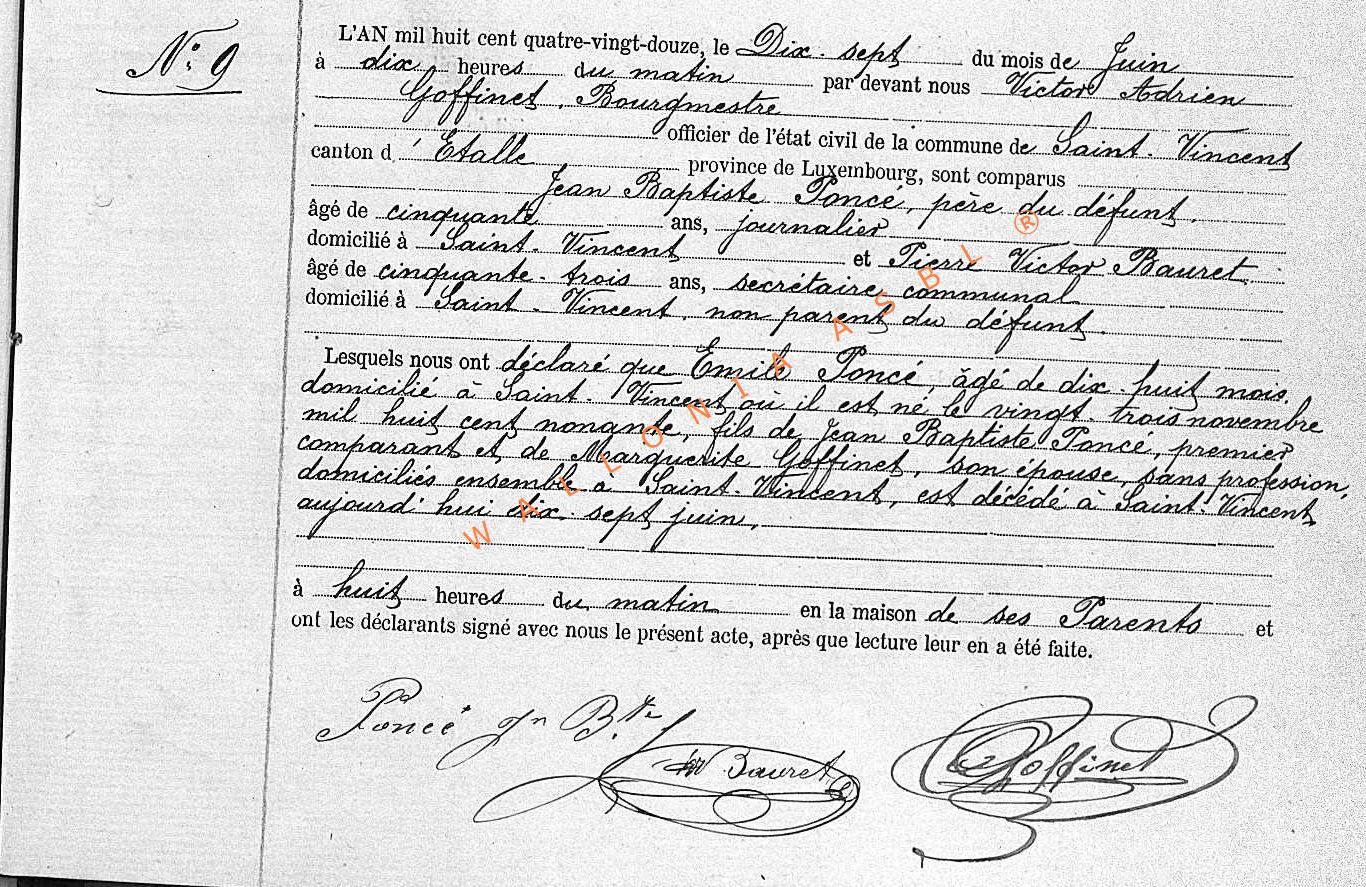 N° 9
L'AN mil huit cent quatre-vingt-douze, le Dix-sept du mois de Juin
à dix heures du matin par devant nous Victor Adrien
Goffinet, Bourgmestre
officier de l'état civil de la commune de Saint-Vincent
canton d'Etalle province de Luxembourg, sont comparus
Jean Baptiste Poncé, père du défunt.
âgé de cinquante ans, journalier
domicilié à Saint-Vincent et Pierre Victor Bauret,
âgé de cinquante-trois ans, secrétaire communal
domicilié à Saint-Vincent, non parent du défunt.
Lesquels nous ont déclaré que Emile Poncé, âgé de dix-huit mois,
domicilié à Saint-Vincent où il est né le vingt trois novembre
mil huit cent nonante, fils de Jean Baptiste Poncé, premier
comparant et de Marguerite Goffinet, son épouse, sans profession,
domiciliés ensemble à Saint-Vincent, est décédé à Saint-Vincent
aujourd'hui dix-sept juin,
à huit heures du matin en la maison de ses Parents et
ont les déclarants signé avec nous le présent acte, après que lecture leur en a été faite.
Poncé Jn B.te
Bauret
Goffinet
WALLONIA ASBL ®